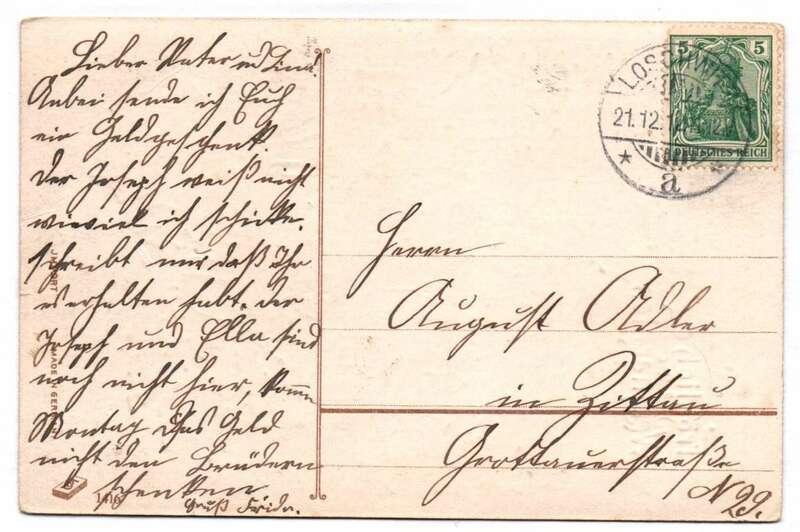 Lieber Vater u Tina!
Anbei sende ich Euch
ein Geldgeschenk.
der Joseph weiß nicht
wieviel ich schicke.
schreibt nur daß Ihr
es erhalten habt. der
Joseph und Ella sind
noch nicht hier, komm
Montag das Geld
nicht den Brüdern
schenken.
Gruß Frida.
IMPORT
MADE IN GER
1416
5 5
DEUTSCHES REICH
LOSCHWITZ
21.12.
* a
Herrn
August Adler
in Zittau
Grottauerstraße
N 29.